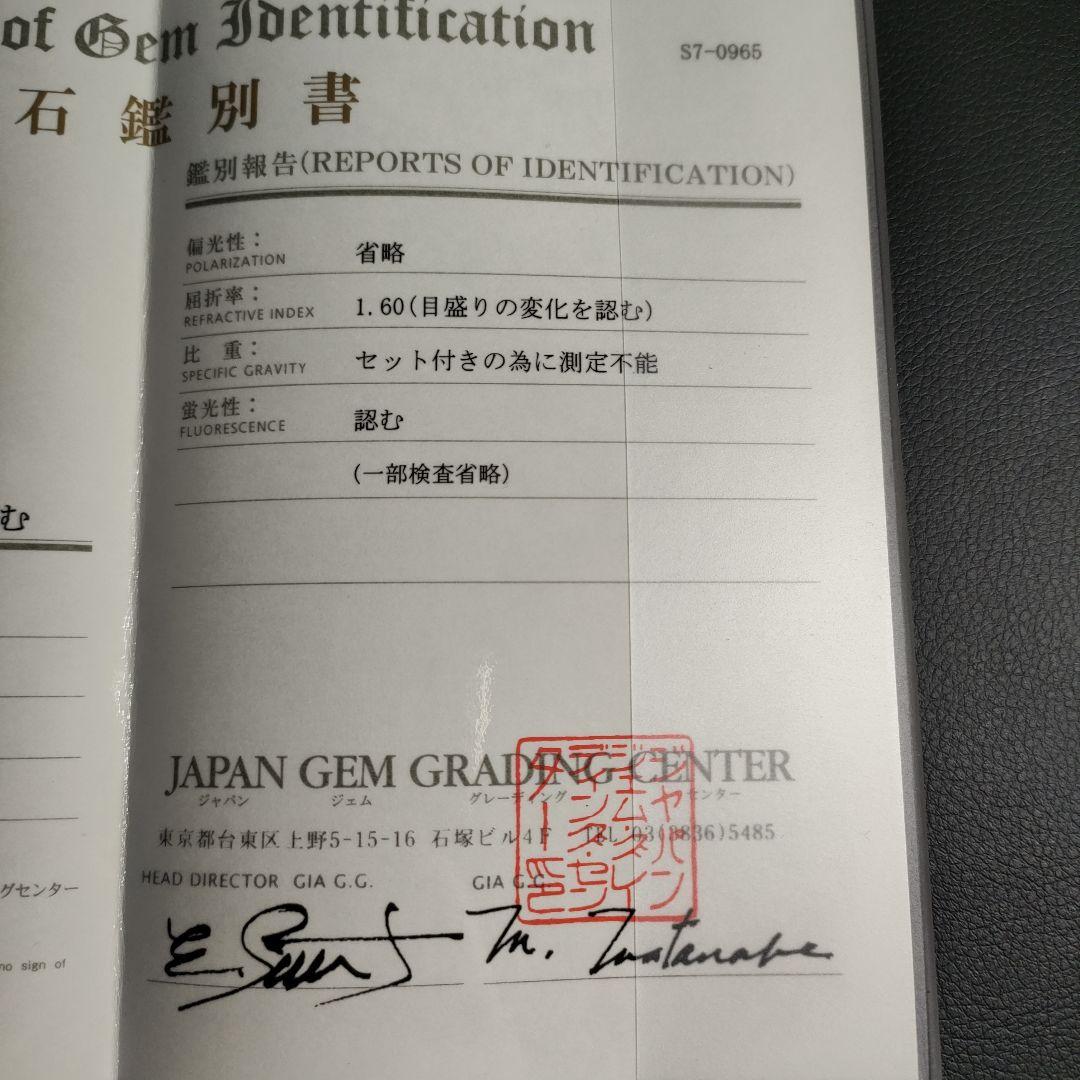 of Gem Identification
S7-0965
石鑑別書
鑑別報告(REPORTS OF IDENTIFICATION)
偏光性：
POLARIZATION
省略
屈折率：
REFRACTIVE INDEX
1.60(目盛りの変化を認む)
比 重：
SPECIFIC GRAVITY
セット付きの為に測定不能
蛍光性：
FLUORESCENCE
認む
(一部検査省略)
む
JAPAN GEM GRADING CENTER
ジャパン ジェム グレーディング センター
ジャパンジェム・グレイディング・センター印
東京都台東区上野5-15-16 石塚ビル4F TEL 03(3836)5485
グセンター
HEAD DIRECTOR GIA G.G.
GIA G.G.
M. Watanabe
no sign of